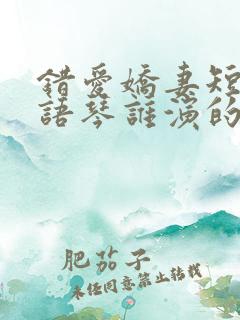 錯愛嬌妻短
語琴誰演的
肥茄子
未經同意禁止轉載